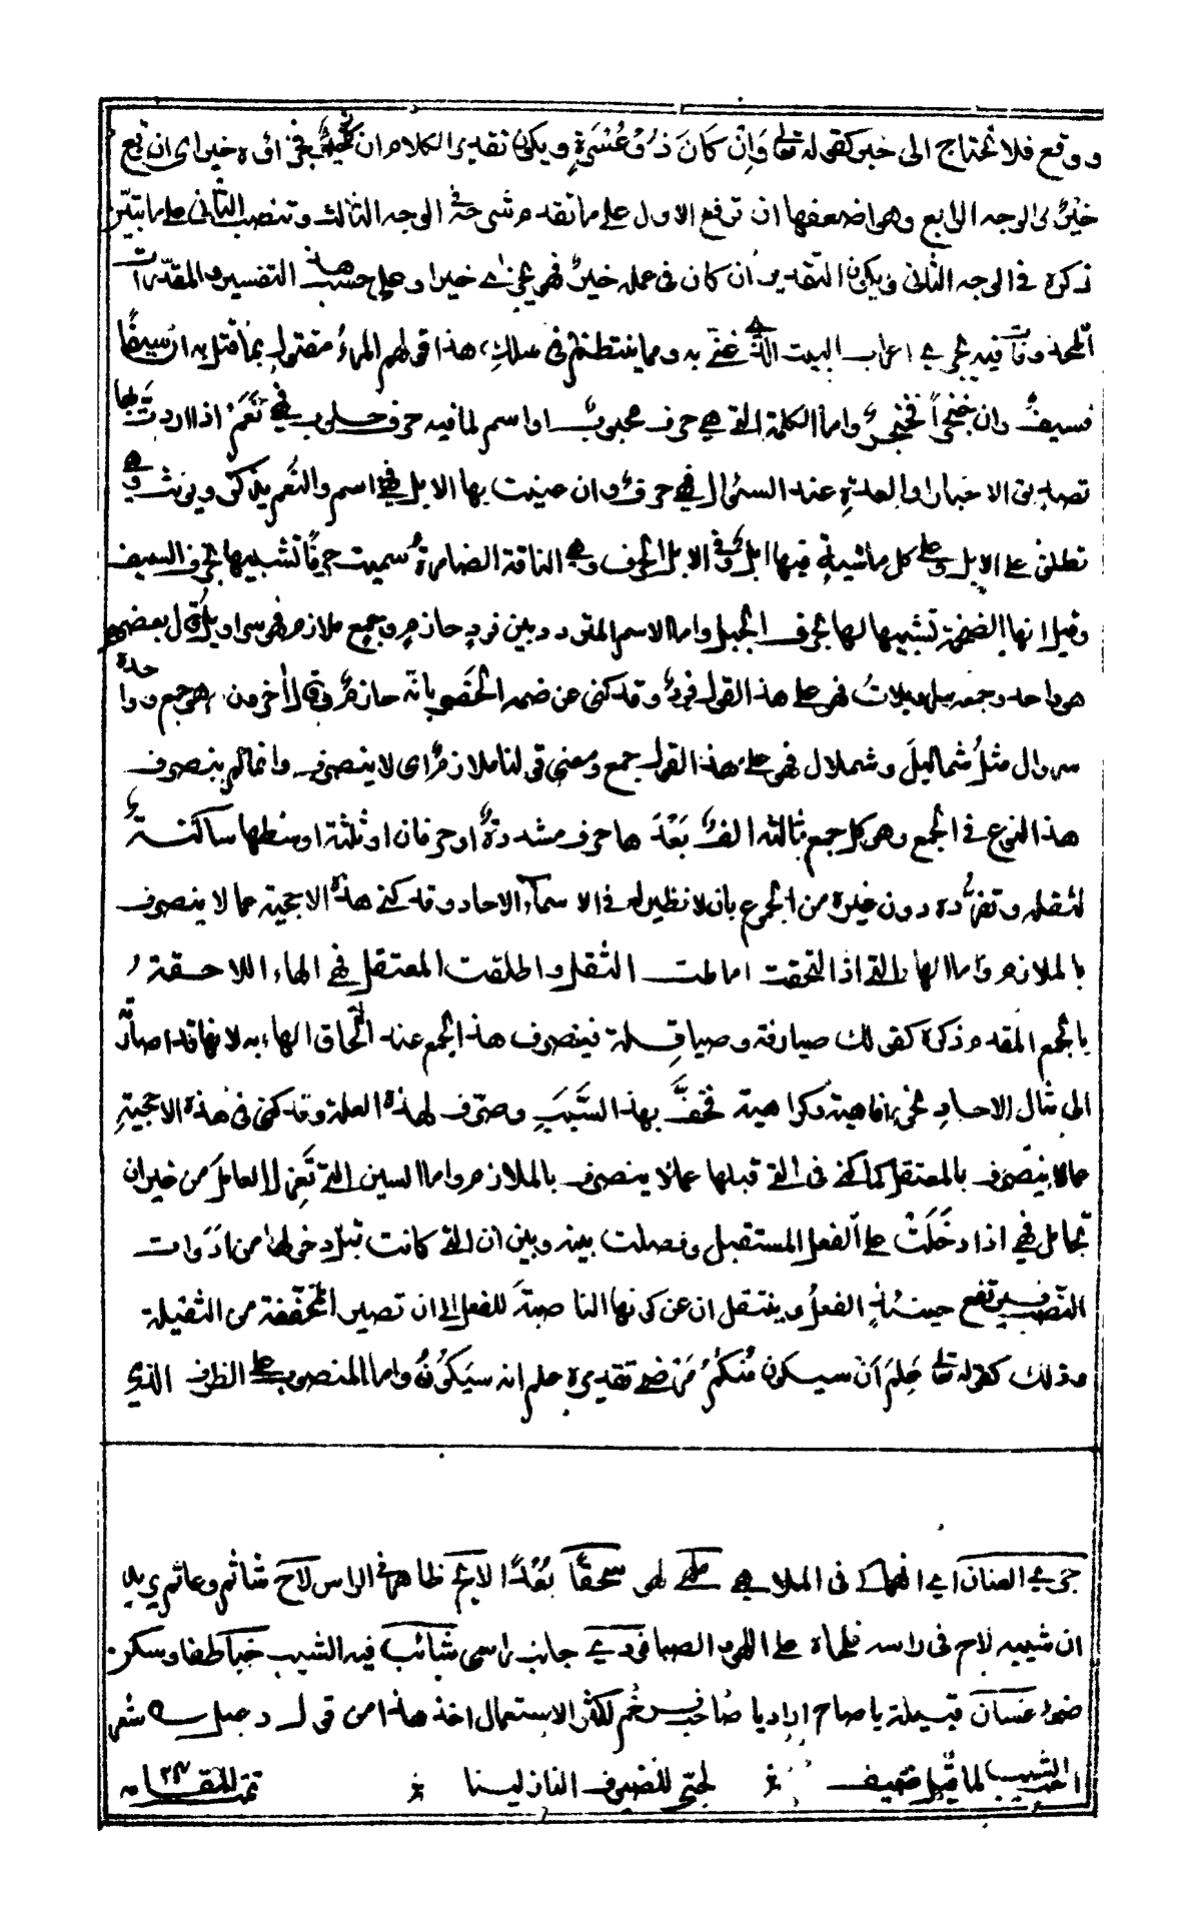 ووقع فلا تحتاج الى خبر كقوله تعالى وَاِنْ كَانَ ذُوْ عُسْرَةٍ ويكون تقدير الكلام ان فجزاؤه خير اى ان وقع
خيرٌ والوجه الرابع وهو اضعفها ان ترفع الاول على ما تقدم شرحه فى الوجه الثالث وتنصب الثانى على ما تبيّن
ذكره فى الوجه الثانى ويكون التقدير ان كان فى عمله خيرٌ فهو يجزى خيرا وعلى حسب هذا التفسير والمقدّرات
المحذوفات فيه يجرى اعراب البيت الذى غنى به ومما ينتظم فى سلك هذا قولهم المرءُ مقتول بما قتل به ان سيفًا
فسيفٌ وان خنجراً فخنجرٌ واما الكلمة التى هى حرف محبوبٌ او اسم لما فيه حرف حلوب فهى نَعَمْ اذا اردتَ بها
تصديق الاخبار او العدة عند السؤال فهى حرفٌ وان عنيت بها الابل فهى اسم والنعم يذكّر ويؤنث وهى
تطلق على الابل وعلى كل ماشية فيها ابل وفى الابل الحرف وهى الناقة الضامرة سميت حرفًا تشبيها بحرف السيف
وقيل انها الضخمة تشبيها لها بحرف الجبل واما الاسم المتردد بين فردٍ حازم وجمع ملازم فهو سراويل قال بعضهم
هو واحد وجمعه سراويلات فهو على هذا القول فردٌ وقد كنى عن ضمه الخصر بانه حازم وقال اٰخرون هو جمع وواحده
سروال مثل شماليل وشملال فهو على هذا القول جمع ومعنى قولنا ملازم اى لا ينصرف وانما لم ينصرف
هذا النوع فى الجمع وهو كل جمع ثالثه الف بَعْدَها حرف مشددةٌ او حرفان او ثلثة اوسطها ساكنة
لثقله وتفرّده دون غيره من الجموع بان لا نظير له فى الاسماء الاحاد وقد كنى هذه الاحجية عما لا ينصرف
بالملازم واما الهاء التى اذا التحقت اماطت الثقل واطلقت المعتقل فهى الهاء اللاحقة
بالجمع المقدم ذكره كقولك صيارفة وصياقلة فينصرف هذا الجمع عند التحاق الهاء به لانها قد اصارته
الى مثال الاحاد نحو رفاهية وكراهية فخفَّ بهذا السَّبَبِ وصرّف لهذه العلة وقد كنى فى هذه الاحجيةِ
عما لا ينصرف بالمعتقل كما كنى فى التى قبلها عما لا ينصرف بالملازم واما السين التى تَعزِل العامل من غير ان
تجامل فهى اذا دخَلَتْ على الفعل المستقبل وفصلت بينه وبين ان التى كانت قبل دخولها من ادوات
النصب فيرتفع حينئذٍ الفعلُ وينتقل ان عن كونها الناصبةَ للفعل الى ان تصير المخففة من الثقيلة
وذلك كقوله تعالى عَلِمَ اَنْ سيكون مِنكُمْ مَرْضٰى تقديره علم انه سَيَكُوْنُ واما المنصوب على الظرف الذى
جرى العنان اى انهماك فى الملاهى ملهى لهو سحقًا بُعْدًا لائح ظاهر فى الراس لاح شاتم وعاتم يريد
ان شيبه لاح فى راسه فلماه على اللهو الصبا فودى جانب راسى شائب فيه الشيب خبا طفا وسكن
ضوء غسان قبيلة يا صاح اراد يا صاحب رخم لكثر الاستعمال اخذ هذا من قول دعبل شعر
احب الشيب لما قيل ضيف لحبى للضيوف النازلينا تمت المقامة ٢٣